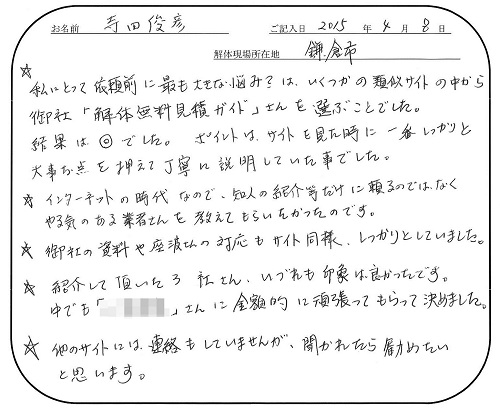 お名前 寺田俊彦 ご記入日 2015 年 4 月 8 日
解体現場所在地 鎌倉市
☆ 私にとって依頼前に最も大きな悩み?は、いくつかの類似サイトの中から
御社「解体無料見積ガイド」さんを選ぶことでした。
結果は◎でした。 ポイントは、サイトを見た時に一番しっかりと
大事な点を押えて丁寧に説明していた事でした。
☆ インターネットの時代なので、知人の紹介等だけに頼るのではなく
やる気のある業者さんを教えてもらいたかったのです。
☆ 御社の資料や座波さんの対応もサイト同様、しっかりとしていました。
☆ 紹介して頂いた3社さん、いづれも印象は良かったです。
中でも「 」さんに金額的に頑張ってもらって決めました。
☆ 他のサイトには連絡もしていませんが、聞かれたら勧めたい
と思います。